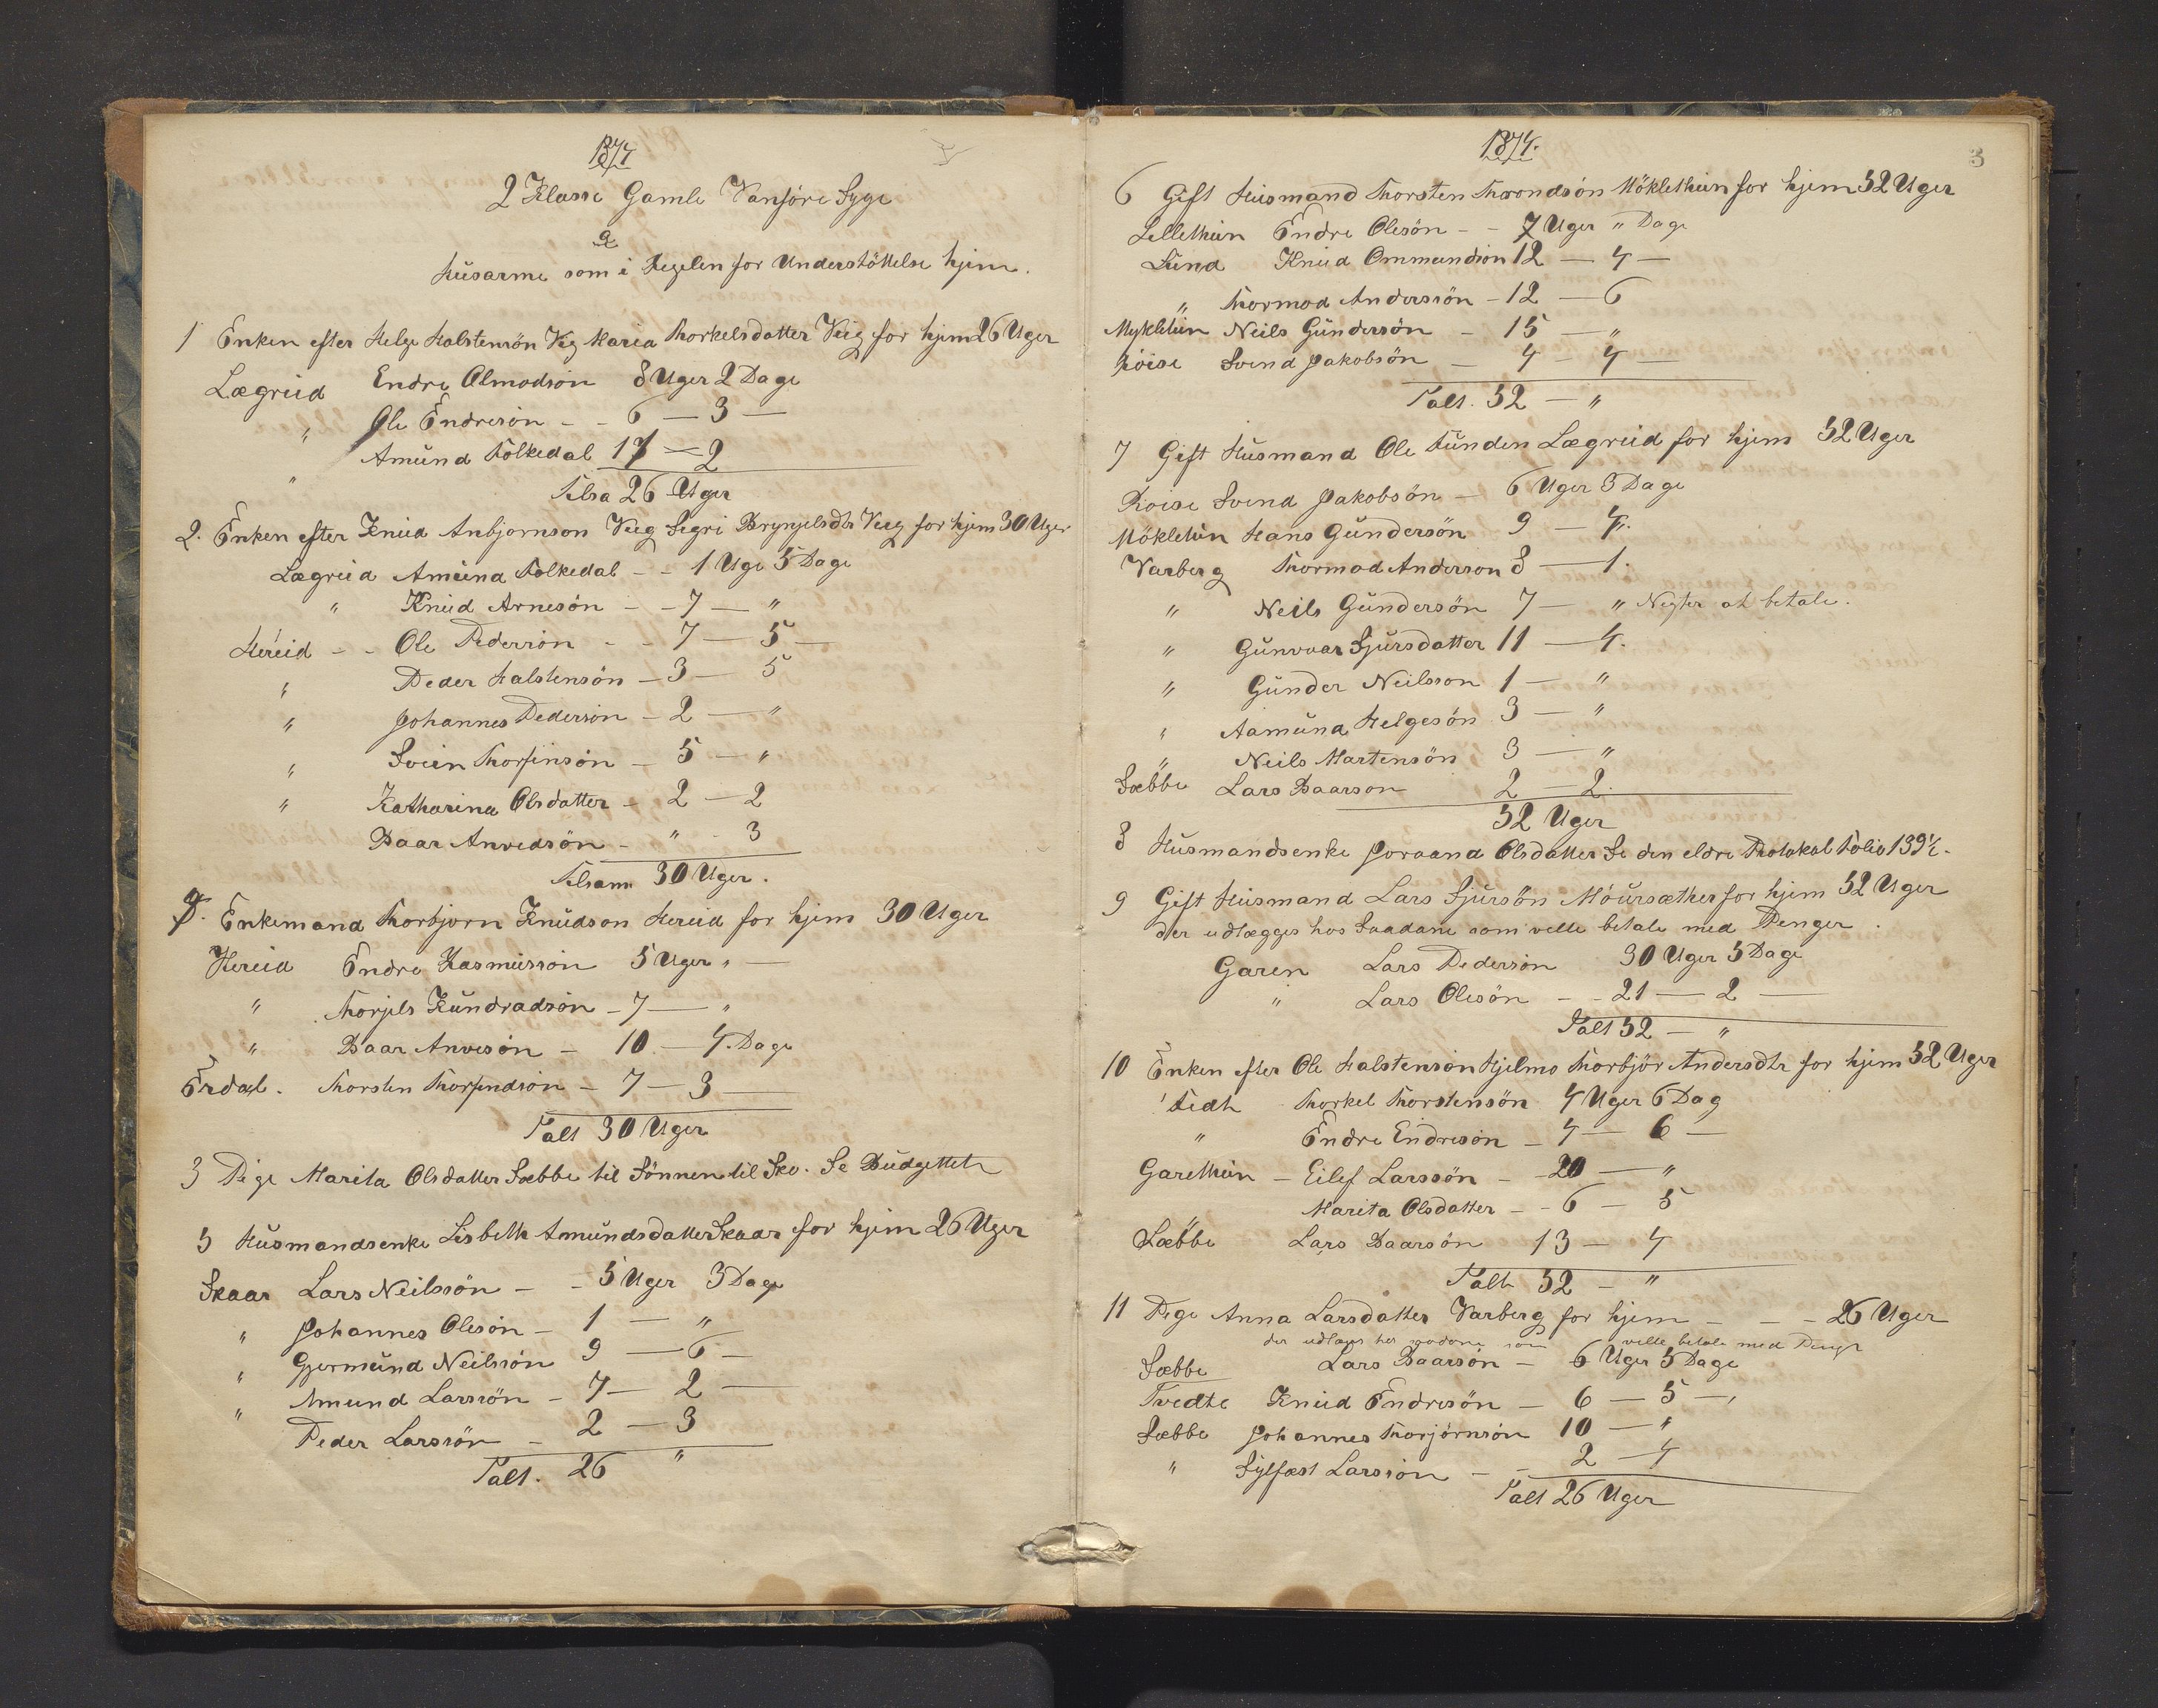 1874
2 Klasse Gamle Vanföre Syge
a
Husarme som i Regelen for Understöttelse hjem.
1 Enken efter Helge Halstensön Veig Maria Thorkelsdatter Veig for hjem 26 Uger
Lægreid Endre Olmodsön 8 Uger 2 Dage
" Ole Endresön - - 6 — 3 —
" Amund Folkedal 11 — 2
Tilsa 26 Uger
2. Enken efter Knud Anbjornson Veeg Segri Brynjelsdtr Veeg for hjem 30 Uger
Lægreid Amund Folkedal - - 1 Uge 5 Dage
" Knud Arnesön - - 7 — "
Hereid - - Ole Pedersön - - 7 — 5 —
" Peder Halstensön - 3 — 5
" Johannes Pedersön - 2 — "
" Svein Thorfinsön - 5 — "
" Katharina Olsdatter - 2 — 2
Baar Anvedsön - " - 3
Tilsam 30 Uger.
4. Enkemand Thorbjorn Knudson Hereid for hjem 30 Uger
Hereid Endre Rasmussön 5 Uger " —
" Thorjels Kundradsön - 7 — "
" Baar Anvesön - 10 — 4. Dage
Erdal. Thorsten Thorfindsön - 7 — 3 —
Talt 30 Uger
3 Pige Marita Olsdatter Sæbbe til Sönnen til Sko. Se Budgettet
5 Husmandsenke Lisbeth Amundsdatter Skaar for hjem 26 Uger
Skaar Lars Neilssön - - 5 Uger 3 Dage
" Johannes Olesön - 1 — "
" Gjermund Neilssön 9 — 6 —
" Amund Larssön - 7 — 2 —
Peder Larssön - 2 — 3
Talt. 26 "
1874.
3
6 Gift Husmand Thorsten Throndsön Möklethun for hjem 52 Uger
Lillethun Endre Olesön - - 7 Uger " Dage
Sund Knud Ommundsön 12 — 4 —
" Thormod Anderssön - 12 — 6
Myklethun Neils Gundersön - 15 — "
Röise Svend Jakobsön - 4 — 4 —
Talt. 52 — "
7 Gift Husmand Ole Funden Lægreid for hjem 52 Uger
Röise Svend Jakobsön - 6 Uger 3 Dage
Möklethun Hans Gundersön 9 — 4.
Varberg Thormod Anderson 8 — 1.
" Neils Gundersön 7 — " Negter at betale.
" Gunvaar Sjursdatter 11 — 4.
" Gunder Neilsson 1 — "
" Aamund Helgesön 3 — "
" Neils Martensön 3 — "
Sæbbe Lars Baarson 2 — 2.
52 Uger
8 Husmandsenke Joraand Olsdatter Se den eldre Protokol Folio 139½.
9 Gift Husmand Lars Sjursön Möursæther for hjem 52 Uger
der udlægges hos Saadane som velle betale med Penger.
Garen Lars Pedersön 30 Uger 5 Dage
" Lars Olesön - - 21 — 2 —
Talt 52 — "
10 Enken efter Ole Halstensön Hjelmo Thorbjör Andersdtr for hjem 52 Uger
Thorkel Thorstensön 4 Uger 6 Dag
" Endre Endresön - 7 — 6 —
Garethun - Eilef Larssön - - 20 — "
" Marita Olsdatter - - 6 — 5
Sæbbe Lars Baarsön 13 — 4
Talt 52 - "
11 Pige Anna Larsdatter Varberg for hjem - - - 26 Uger
der udlages hos saadane som velle betale med Penge
Sæbbe Lars Baarsön - 6 Uger 5 Dage
Tvedte Knud Endresön - 6 — 5 —
Sæbbe Johannes Thorjörnsön 10 — "
" Sylfæst Larssön - - 2 — 4
Talt 26 Uger